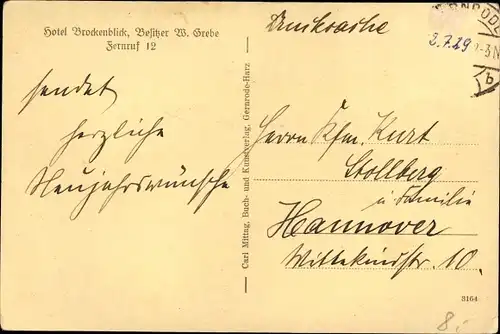 Hotel Brockenblick, Besitzer W. Grebe
Fernruf 12
sendet
herzliche
Neujahrswünsche
Carl Mittag, Buch- und Kunstverlag, Gernrode-Harz
Drucksache
2.7.29
-3N
b
Herrn Kfm. Kurt
Stollberg
u. Familie
Hannover
Wittekindstr. 10.
3164
8.-